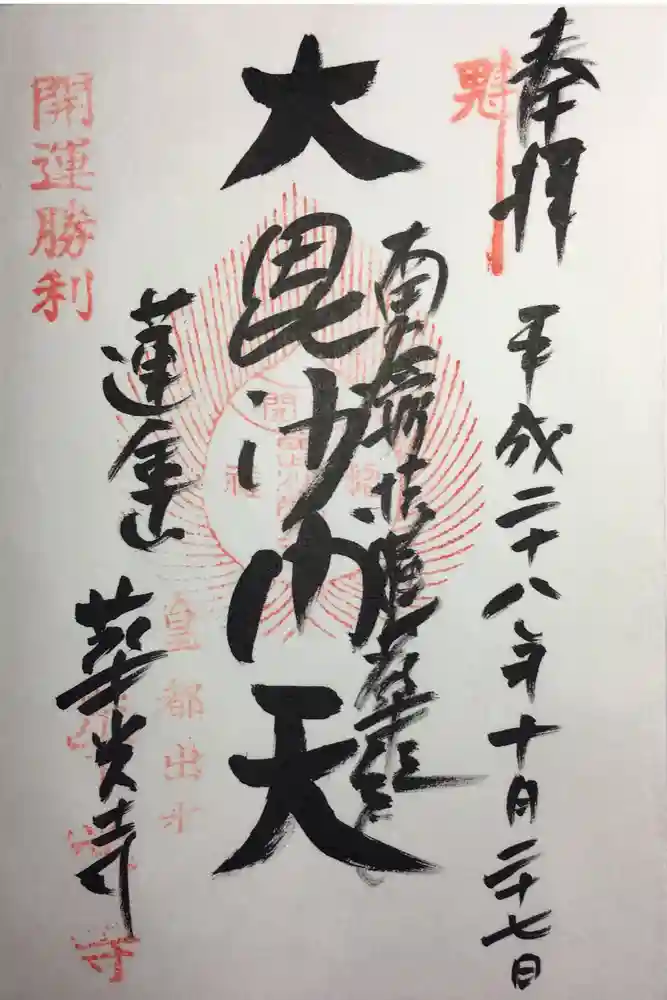 奉拝
平成二十八年十月二十七日
魁
南無妙法蓮華経
大毘沙門天
開運
開運勝利
蓮金山
華光寺
皇都出水
華光寺